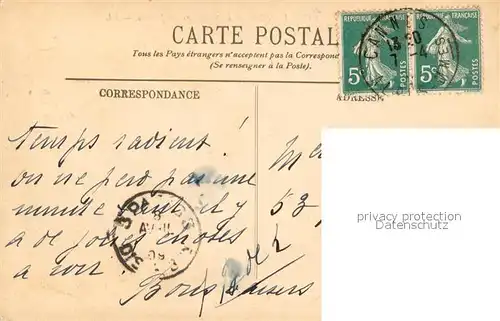 CARTE POSTALE
Tous les Pays étrangers n'acceptent pas la Correspond
(Se renseigner à la Poste).
REPUBLIQUE FRANÇAISE
5c POSTES
REPUBLIQUE FRANÇAISE
5c POSTES
CORRESPONDANCE
ADRESSE
Temps radieux!
on ne perd pas une
minute tant il y
a de jolies choses
à voir!
Bons baisers
de
53
privacy protection
watermark